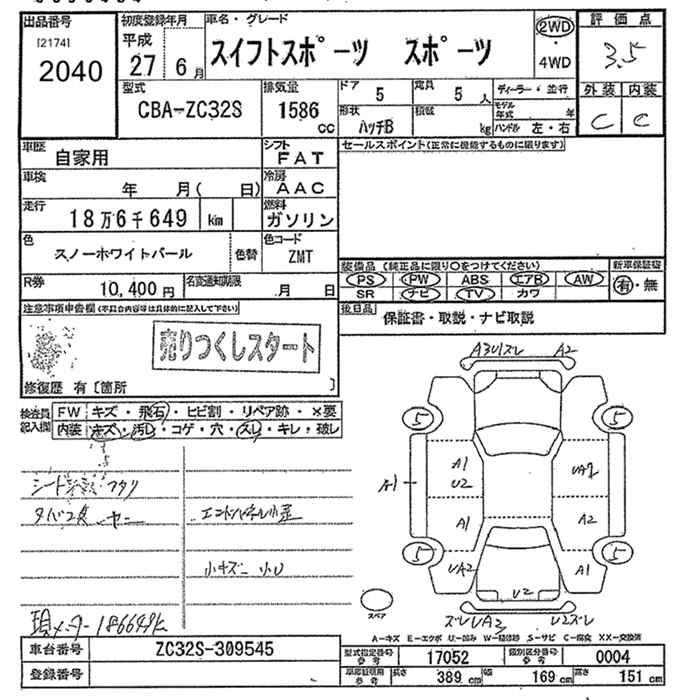 出品番号
[2174]
2040
初度登録年月
平成
27 6月
車名・グレード
スイフトスポーツ スポーツ
2WD
・
4WD
評価点
3.5
外装 内装
C C
型式
CBA-ZC32S
排気量
1586
cc
ドア
5
定員
5 人
形状
ハッチB
積載
kg
ディーラー・並行
モデル
年式 年
ハンドル 左・右
車歴
自家用
シフト
FAT
セールスポイント(正常に機能するものに限ります)
車検
年 月( 日)
冷房
AAC
走行
18万6千649 km
燃料
ガソリン
色
スノーホワイトパール
色替
色コード
ZMT
装備品 (純正品に限り○をつけてください)
PS PW ABS エアB AW
SR ナビ TV カワ
新車保証書
有・無
R券
10,400円
名変通知期限
月 日
後日品
保証書・取説・ナビ取説
注意事項申告欄(不具合内容等は具体的に記入して下さい)
売りつくしスタート
修復歴 有〔箇所 〕
検査員
記入欄
FW キズ・飛石・ヒビ割・リペア跡・×要
内装 キズ・汚レ・コゲ・穴・スレ・キレ・破レ
タバコ臭 ヤニ
エンドパネル小歪
小キズ 小U
現メーター186649K
A3U1スレ A2
5 5
A1
A1
U2
A1
UA2
A2
A1
5 5
UA2
U2
スレUA3 U2スレ
スペア
A-キズ E-エクボ U-凹み W-補修跡 S-サビ C-腐食 XX-交換済
車台番号
ZC32S-309545
登録番号
型式指定番号
参考
17052
類別区分番号
参考
0004
車庫証明用
参考
長さ
389 cm
幅
169 cm
高さ
151 cm